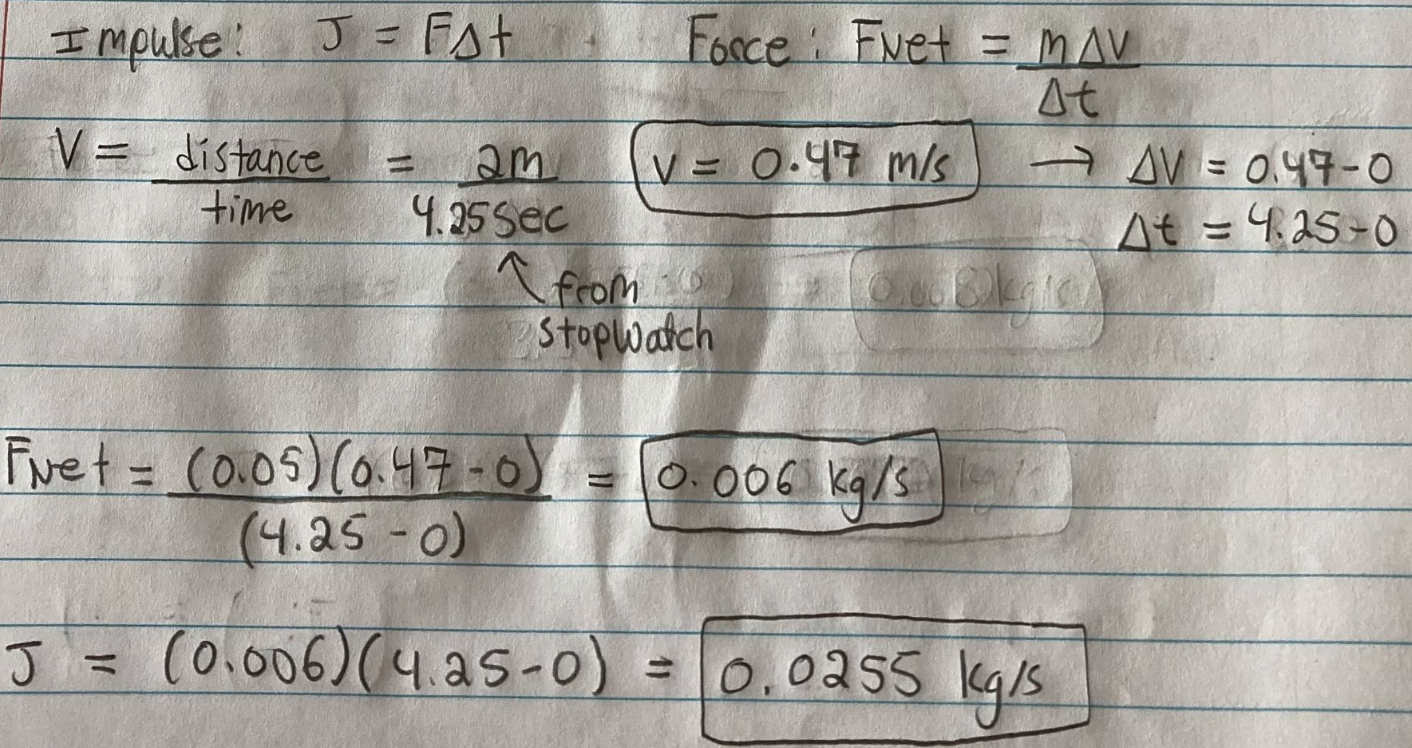 Impulse: J = FΔt Force: FNet = mΔV/Δt
V = distance/time = 2m/4.25sec V = 0.47 m/s → ΔV = 0.47-0
Δt = 4.25-0
↑ from
stopwatch
FNet = (0.05)(0.47-0)/(4.25-0) = 0.006 kg/s
J = (0.006)(4.25-0) = 0.0255 kg/s